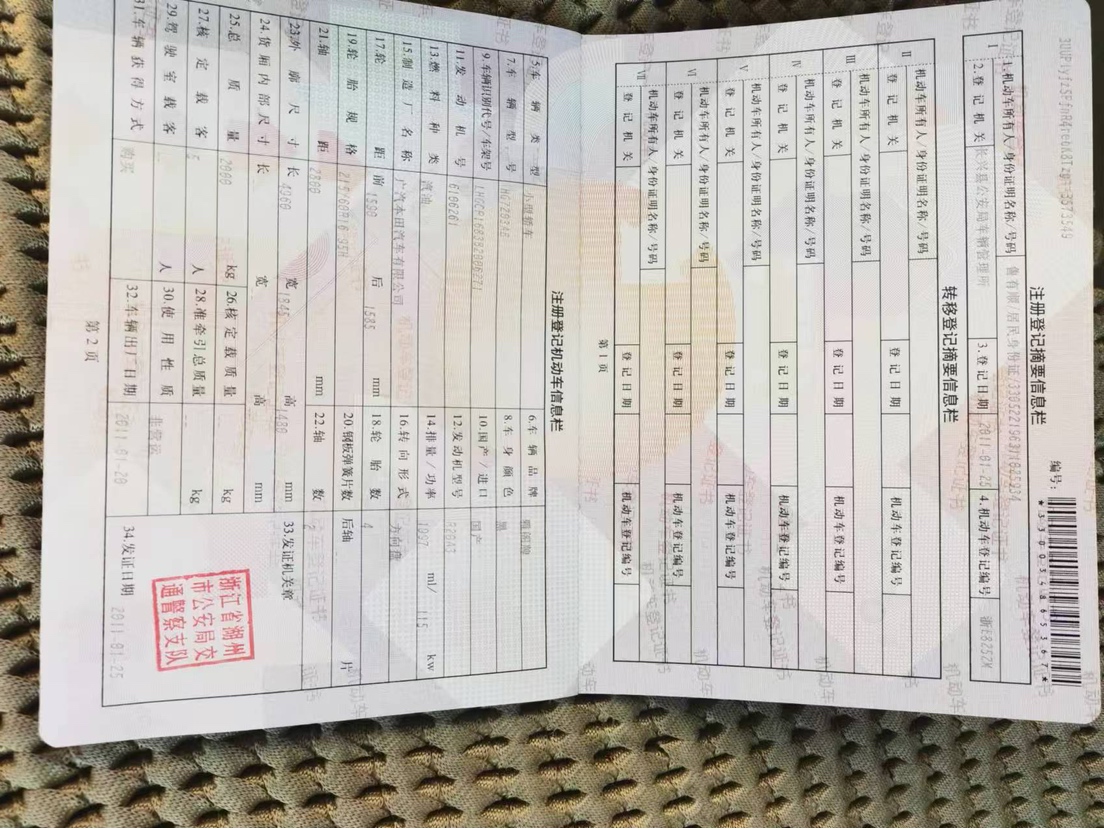 编号：
注册登记摘要信息栏
I
1.机动车所有人/身份证明名称/号码
2.登记机关 长兴县公安局车辆管理所 3.登记日期 2011-01-25 4.机动车登记编号 浙E8252X
转移登记摘要信息栏
II
机动车所有人/身份证明名称/号码
登记机关 登记日期 机动车登记编号
III
机动车所有人/身份证明名称/号码
登记机关 登记日期 机动车登记编号
IV
机动车所有人/身份证明名称/号码
登记机关 登记日期 机动车登记编号
V
机动车所有人/身份证明名称/号码
登记机关 登记日期 机动车登记编号
VI
机动车所有人/身份证明名称/号码
登记机关 登记日期 机动车登记编号
VII
机动车所有人/身份证明名称/号码
登记机关 登记日期 机动车登记编号
第1页
注册登记机动车信息栏
5.车辆类型 小型轿车 6.车辆品牌
7.车辆型号 8.车身颜色 黑
9.车辆识别代号/车架号 10.国产/进口 国产
11.发动机号 6106261 12.发动机型号
13.燃料种类 汽油 14.排量/功率 1997 ml/ 115 kw
15.制造厂名称 广汽本田汽车有限公司 16.转向形式 方向盘
17.轮距 前 1590 后 1585 mm 18.轮胎数 4
19.轮胎规格 20.钢板弹簧片数 后轴 片
21.轴距 2800 mm 22.轴数 2
23.外廓尺寸 长 4960 宽 1845 高 1480 mm
24.货厢内部尺寸 长 宽 高 mm
25.总质量 2000 kg 26.核定载质量 kg
27.核定载客 5 人 28.准牵引总质量 kg
29.驾驶室载客 人 30.使用性质 非营运
31.车辆获得方式 购买 32.车辆出厂日期 2011-01-20
33.发证机关章
浙江省湖州
市公安局交
通警察支队
34.发证日期 2011-01-25
第2页